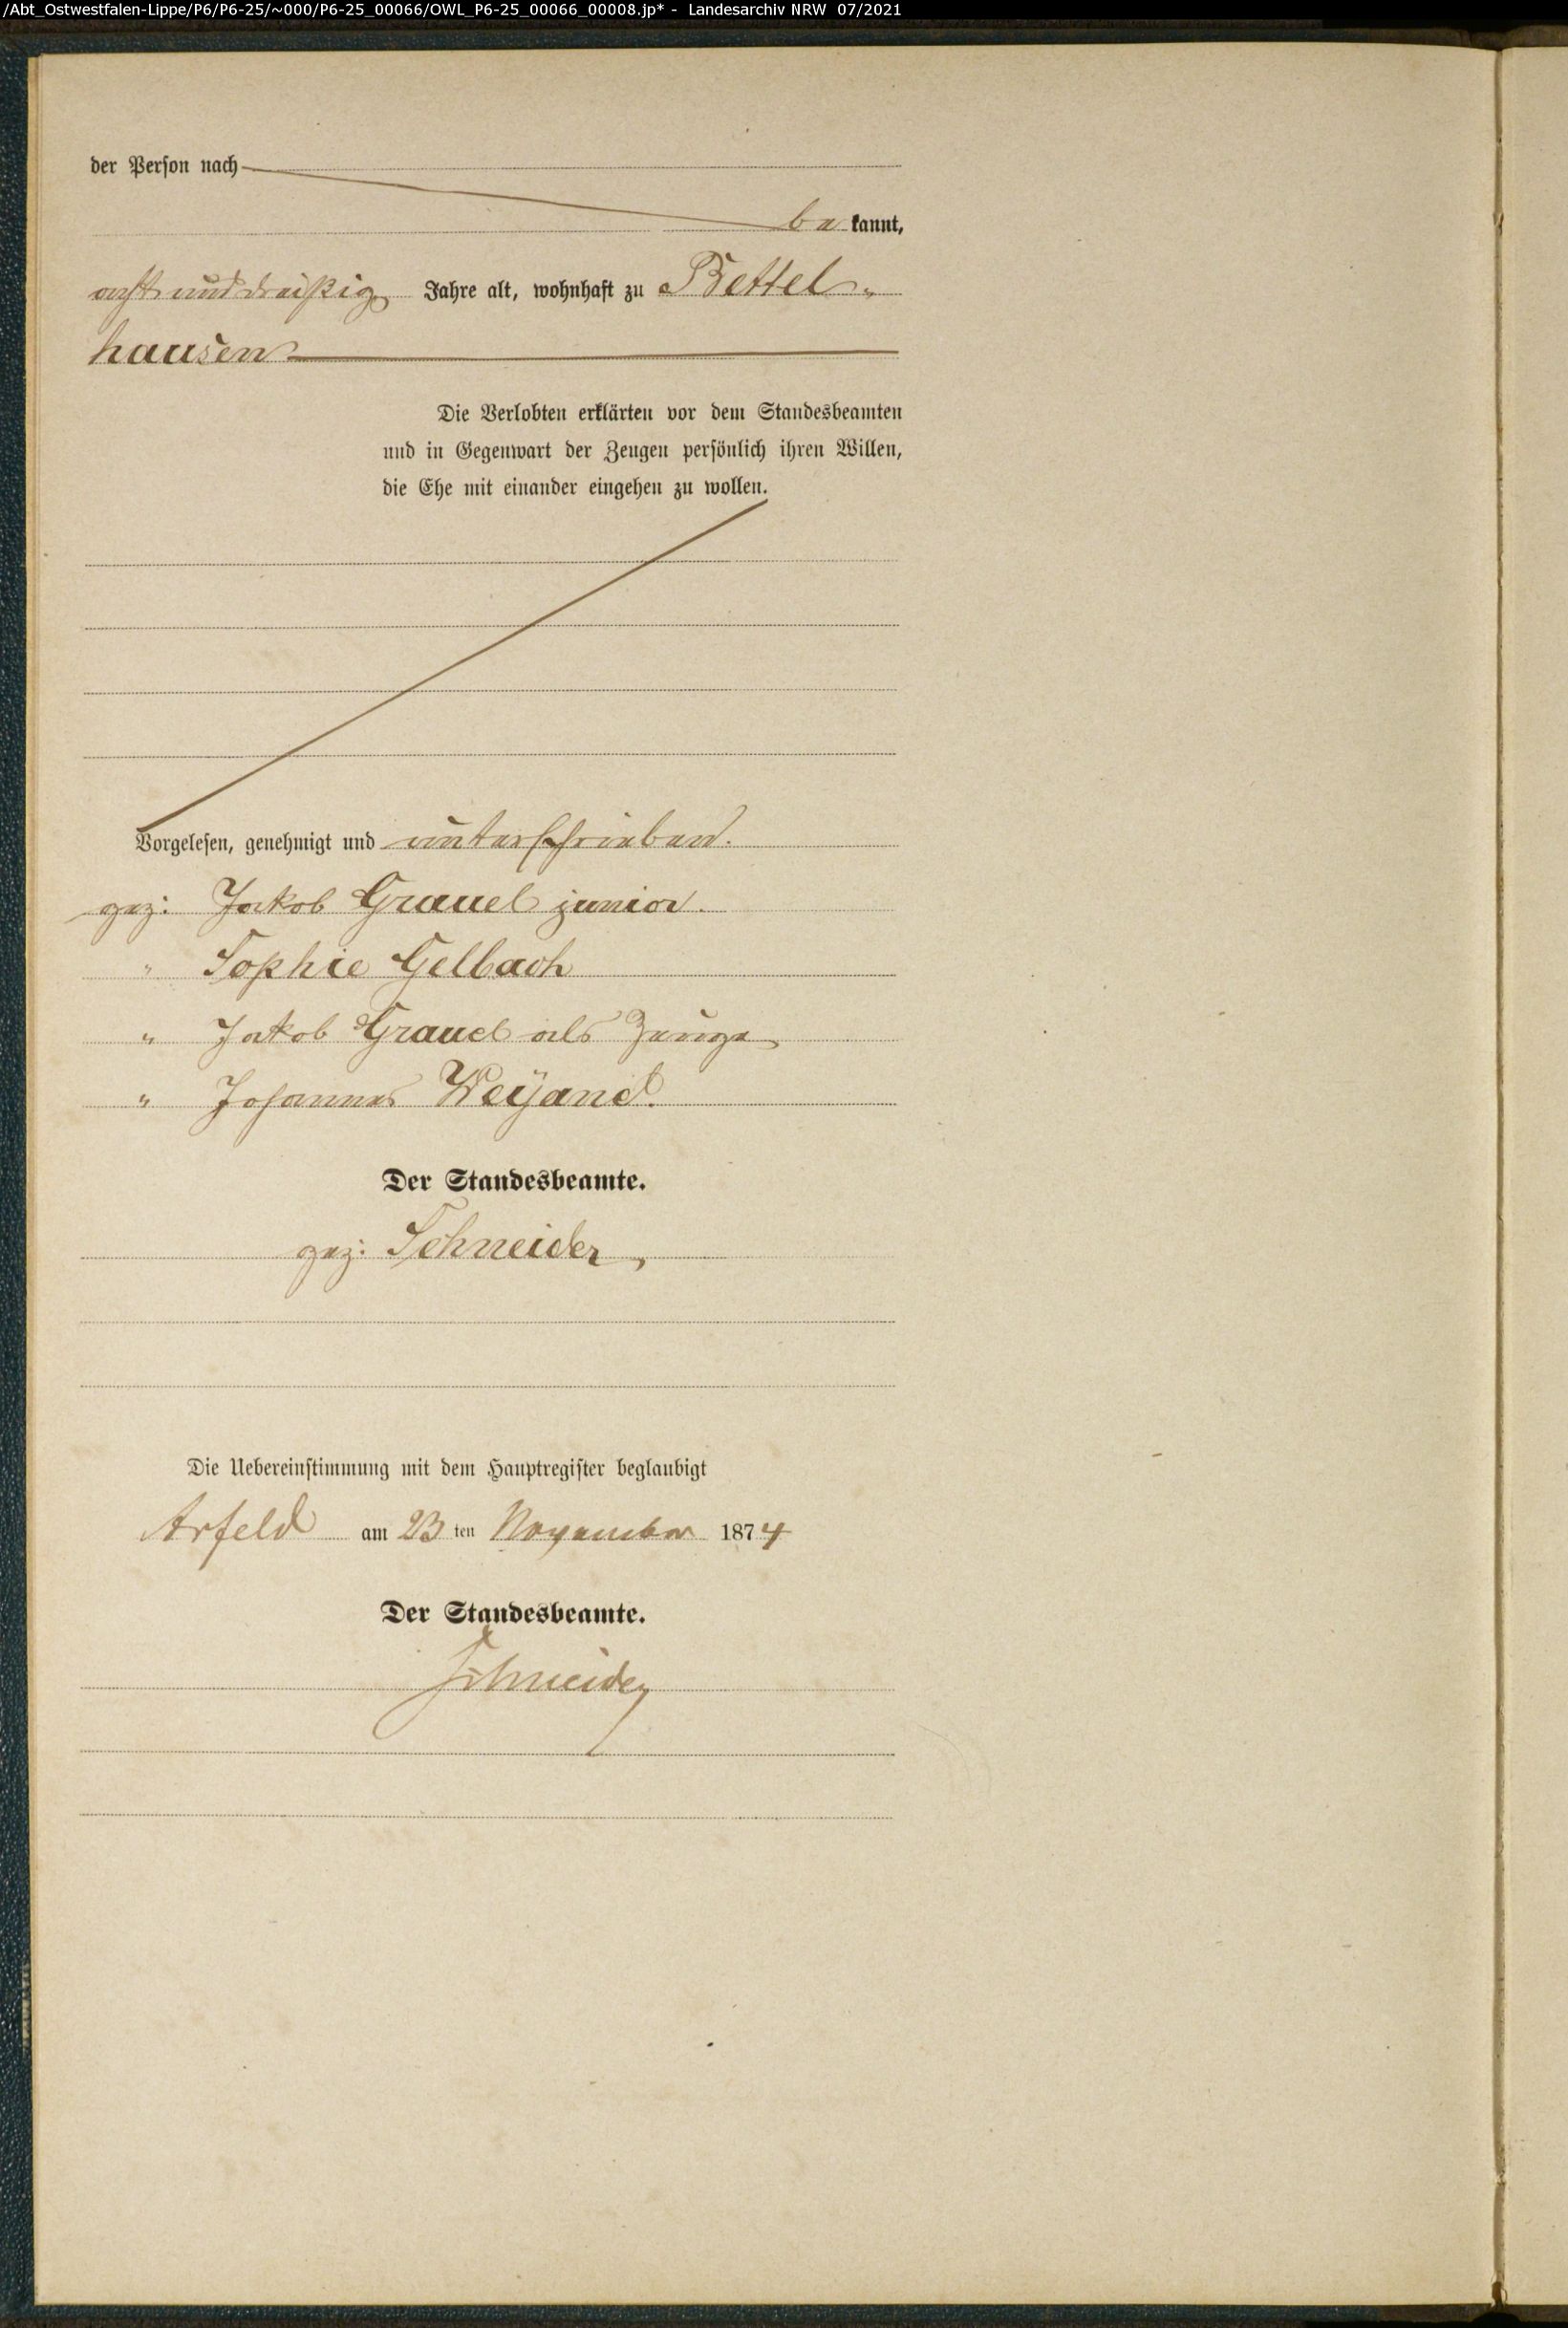 /Abt_Ostwestfalen-Lippe/P6/P6-25/~000/P6-25_00066/OWL_P6-25_00066_00008.jp* - Landesarchiv NRW 07/2021
der Person nach
be kannt,
acht und dreißig Jahre alt, wohnhaft zu Bettel„
hausen
Die Verlobten erklärten vor dem Standesbeamten
und in Gegenwart der Zeugen persönlich ihren Willen,
die Ehe mit einander eingehen zu wollen.
Vorgelesen, genehmigt und unterschrieben.
gez: Jakob Grauel junior.
„ Sophie Gelbach
„ Jakob Grauel als Zeuge
„ Johannes Weÿand.
Der Standesbeamte.
gez: Schneider,
Die Uebereinstimmung mit dem Hauptregister beglaubigt
Arfeld am 23 ten November 1874
Der Standesbeamte.
Schneider